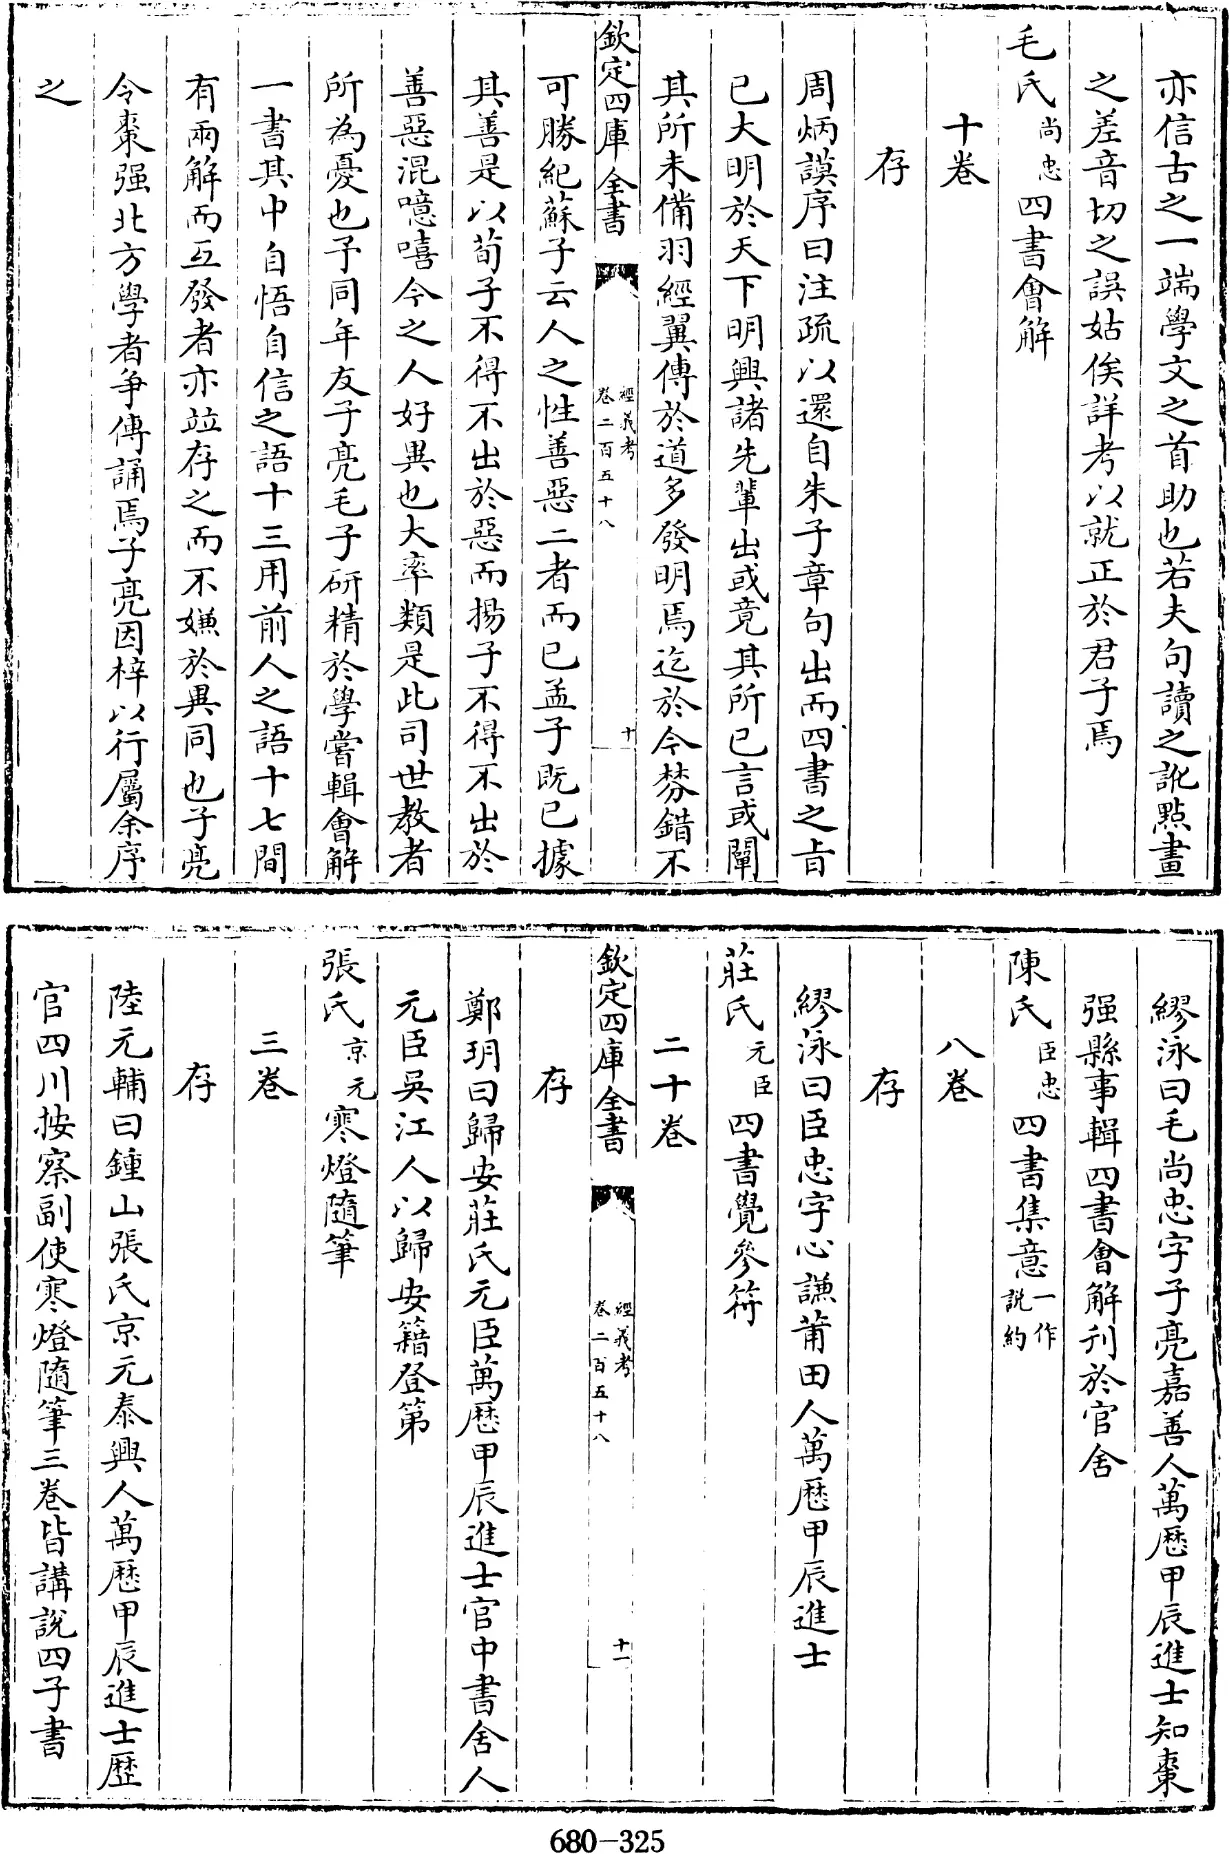 亦信古之一端學文之首助也若夫句讀之訛點畫
之差音切之誤姑俟詳考以就正於君子焉
毛氏尚忠四書會解
十卷
存
周炳謨序曰注疏以還自朱子章句出而四書之旨
已大明於天下明興諸先輩出或竟其所已言或闡
其所未備羽經翼傳於道多發明焉迄於今棼錯不
欽定四庫全書 經義考 卷二百五十八 十
可勝紀蘇子云人之性善惡二者而已孟子既已據
其善是以荀子不得不出於惡而揚子不得不出於
善惡混噫嘻今之人好異也大率類是此司世教者
所為憂也予同年友子亮毛子研精於學嘗輯會解
一書其中自悟自信之語十三用前人之語十七間
有兩解而互發者亦竝存之而不嫌於異同也子亮
令棗强北方學者争傳誦焉子亮因梓以行屬余序
之
繆泳曰毛尚忠字子亮嘉善人萬厯甲辰進士知棗
强縣事輯四書會解刊於官舍
陳氏臣忠四書集意一作說約
八卷
存
繆泳曰臣忠字心謙莆田人萬厯甲辰進士
莊氏元臣四書覺參符
二十卷
欽定四庫全書 經義考 卷二百五十八 十一
存
鄭玥曰歸安莊氏元臣萬厯甲辰進士官中書舍人
元臣吳江人以歸安籍登第
張氏京元寒燈隨筆
三卷
存
陸元輔曰鍾山張氏京元泰興人萬厯甲辰進士歷
官四川按察副使寒燈隨筆三卷皆講說四子書
680-325